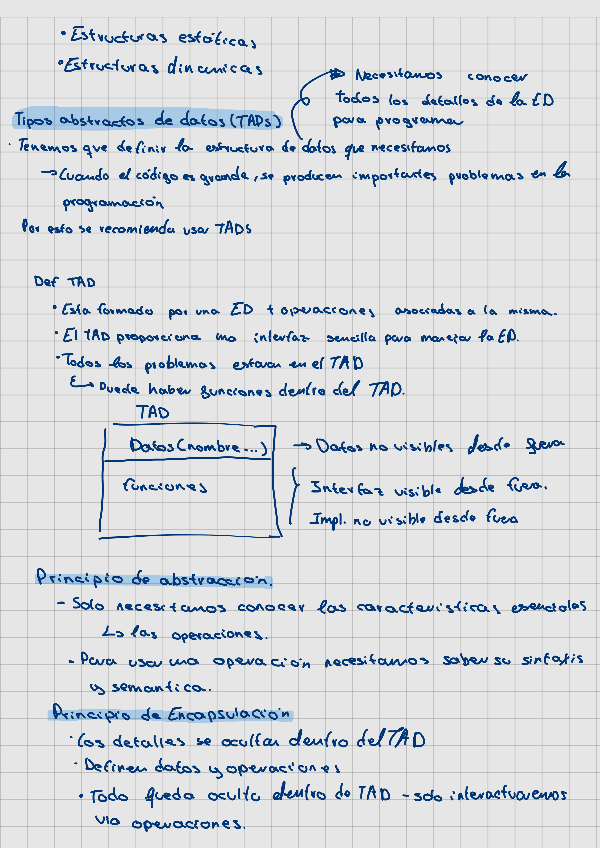 • Estructuras estáticas
• Estructuras dinamicas
Necesitamos conocer
todos los detalles de la ED
para programar
Tipos abstractos de datos (TADs)
· Tenemos que definir la estructura de datos que necesitamos
→ Cuando el código es grande, se producen importantes problemas en la
programación
Por esto se recomienda usar TADs
Def TAD
• Esta formado por una ED + operaciones asociadas a la misma.
• El TAD proporciona una interfaz sencilla para manejar la ED.
• Todos los problemas estaran en el TAD
↳ Puede haber funciones dentro del TAD.
TAD
Datos (nombre...) → Datos no visibles desde fuera
funciones
Interfaz visible desde fuera.
Impl. no visible desde fuera
Principio de abstracción.
- Solo necesitamos conocer las caracteristicas esenciales
↳ las operaciones.
- Para usar una operación necesitamos saber su sintaxis
y semantica.
Principio de Encapsulación
· Los detalles se ocultan dentro del TAD
· Definen datos y operaciones
• Todo queda oculto dentro de TAD - solo interactuaremos
via operaciones.